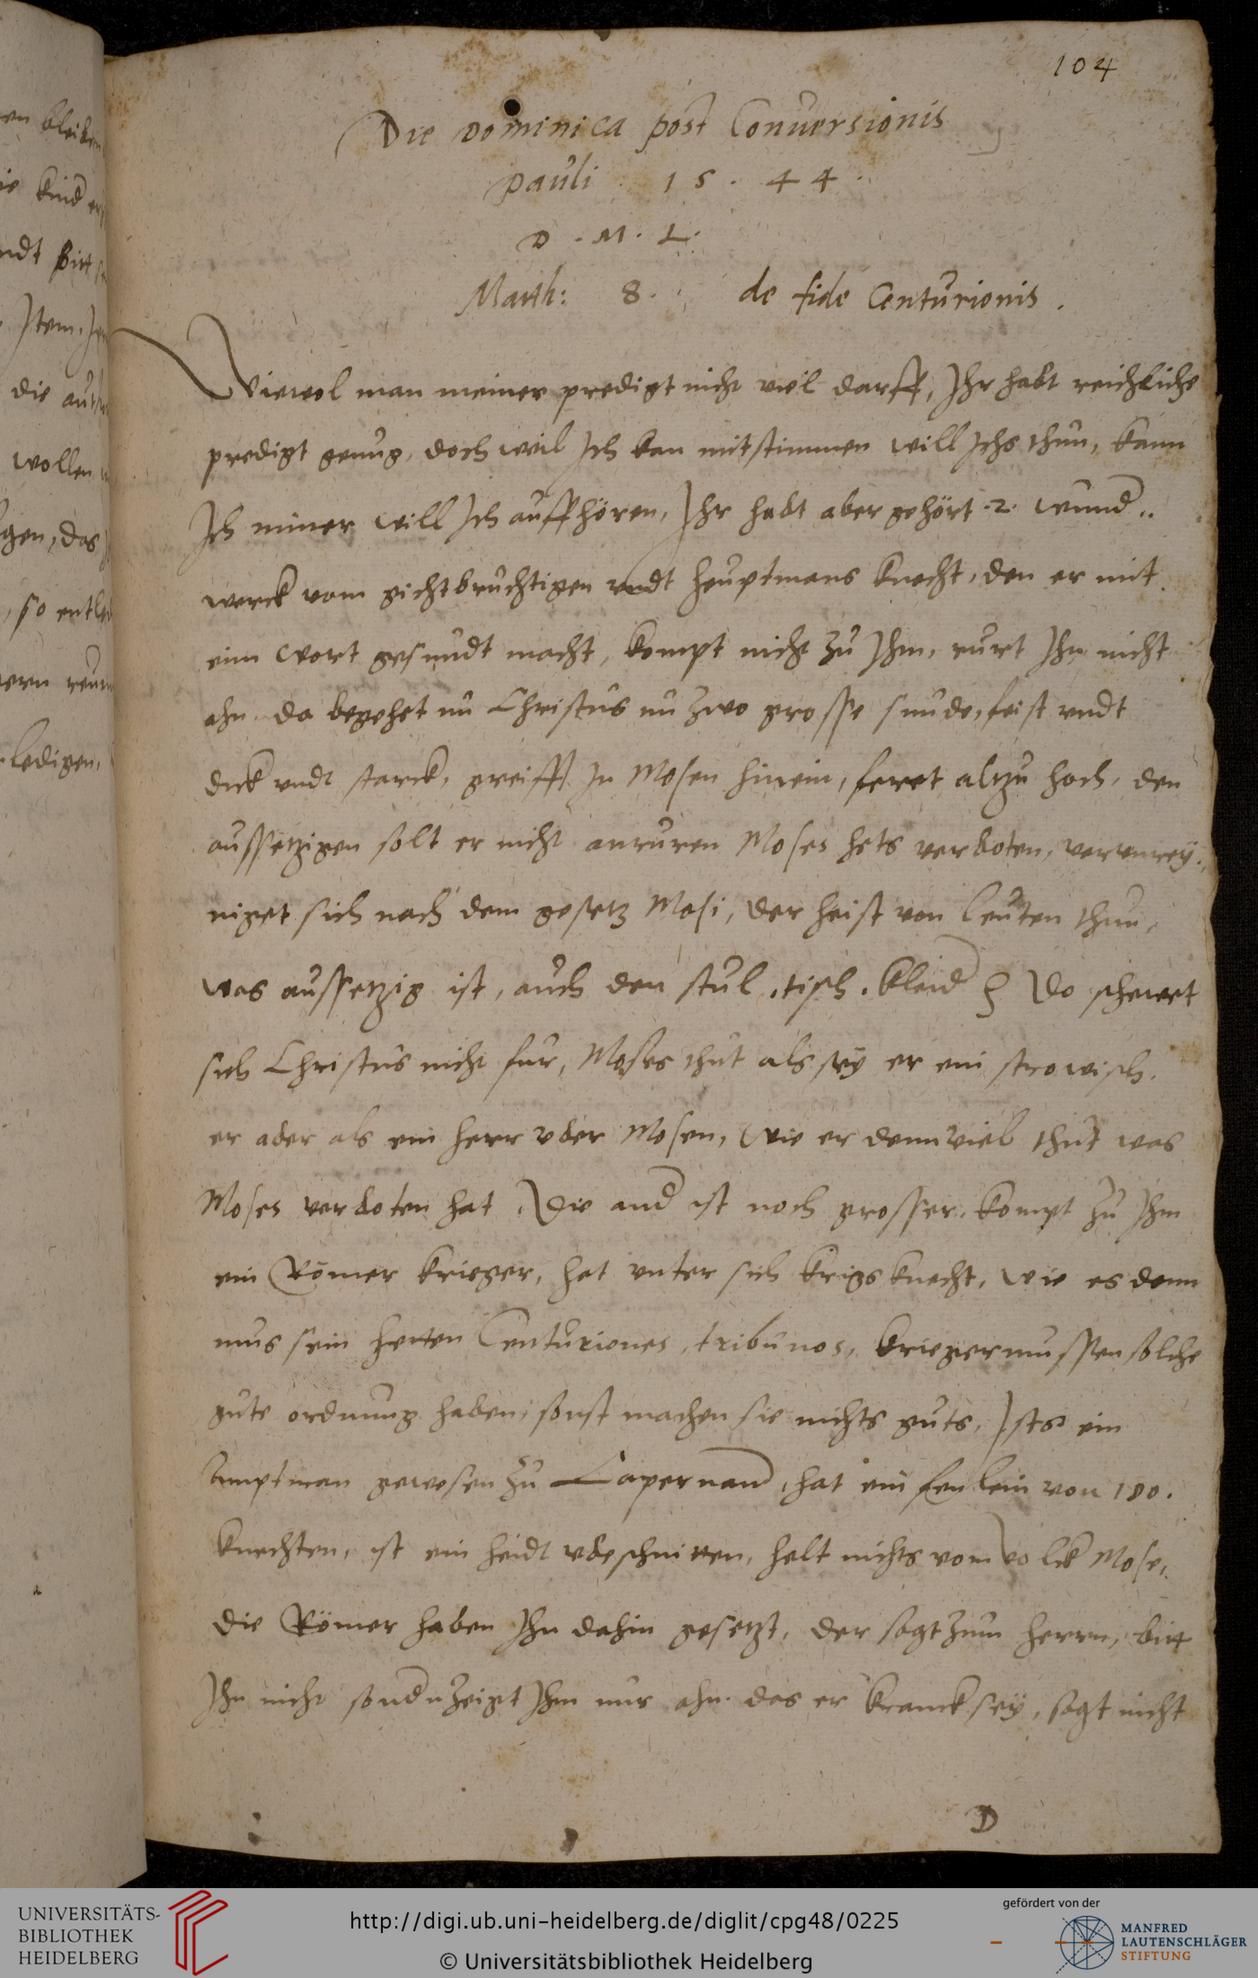 104
Die Dominica post Conuersionis
Pauli 15.44.
D. M. L.
Matth: 8. de fide Centurionis.
Wiewol man meiner predigt nicht viel darff, Ihr habt reichliche
predigt genug, doch weil Ich kan mitstimmen will Ichs thun, kann
Ich nimer will Ich auffhören, Ihr habt aber gehört .2. wund..
werck vom gichtbruchtigen vndt heuptmans knecht, den er mit
eim wort gesundt macht, kompt nicht zu Ihm, rurt Ihn nicht
ahn. da begehet nu Christus nu zwo grosse sunde, feist vndt
dick vndt starck, greifft In Mosen hinein, feret alzu hoch, den
aussetzigen solt er nicht anruren Moses hets verboten, verunrey-
niget sich nach dem gesetz Mosi, der heist von leuten thun,
was aussetzig ist, auch den stul, tisch, kleid Do schewet
sich Christus nicht fur, Moses thut als sey er ein strowisch,
er aber als ein herr vber Mosen, wie er denn viel thut was
Moses verboten hat, Die and ist noch grosser, kompt zu Ihm
ein Römer krieger, hat vnter sich krigs knecht, wie es denn
mus sein Centuriones, tribunos, krieger mussen solche
gute ordnung haben, sonst machen sie nichts guts, Ists ein
amptman gewesen zu Capernaum, hat ein fenlein von 100.
knechten, ist ein heidt vbeschnitten, helt nichts vom volck Mose,
die Römer haben Ihn dahin gesetzt, der sagt zum herrn, bitt
Ihn nicht sondn zeigt Ihm nur ahn. das er kranck sey, sagt nicht
D
en bleiben
kind
ndt
Item,
die
wollen
gen, das
, so
ledigen,
UNIVERSITÄTS-
BIBLIOTHEK
HEIDELBERG
http://digi.ub.uni-heidelberg.de/diglit/cpg48/0225
© Universitätsbibliothek Heidelberg
gefördert von der
MANFRED
LAUTENSCHLÄGER
STIFTUNG